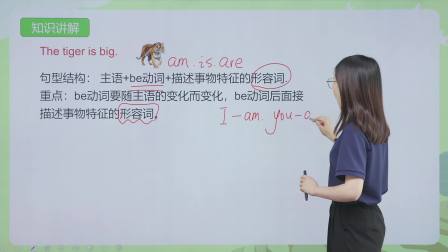 知识讲解
The tiger is big.
am. is. are
句型结构： 主语+be动词+描述事物特征的形容词.
重点：be动词要随主语的变化而变化，be动词后面接
描述事物特征的形容词。
I-am. you-a